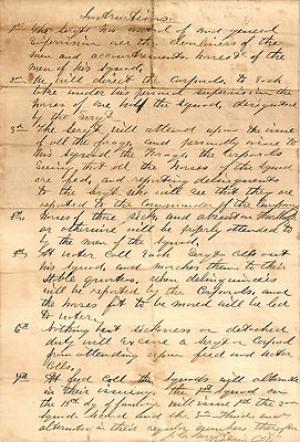 Instructions.
1st The Sergt has control of and general
Supervision over the cleanliness of the
men and accoutrements, horses of the
men of his Squad.
2nd He will direct the Corporals to each
take under his personal supervision the
horses of one half the Squad, designated
by the Sergt.
3rd The Sergt will attend upon the issue
of all the forage, and personally issue to
his Squad the forage, the Corporals
seeing that all the horses of the Squad
are fed, and reporting delinquents
to the Sergt who will see that they are
reported to the Commander of the Company
4th, Horses of those sick, and absent on
or otherwise will be properly attended to
by the men of the Squad.
5th, At water call each Sergt calls out
his Squad, and marches them to their
Stable grounds, when delinquencies
will be reported by the Corporals, and
the horses fit to be moved will be led
to water.
6th Nothing but sickness or detached
duty will excuse a Sergt or Corporal
from attending upon feed and water
Calls.
7th At feed call the Squads will alternate
in their issuing, the 1st Squad on
the 15th day of January will issue 1st the
Squad second and the 3rd third and
alternate in their regular numbers thereafter